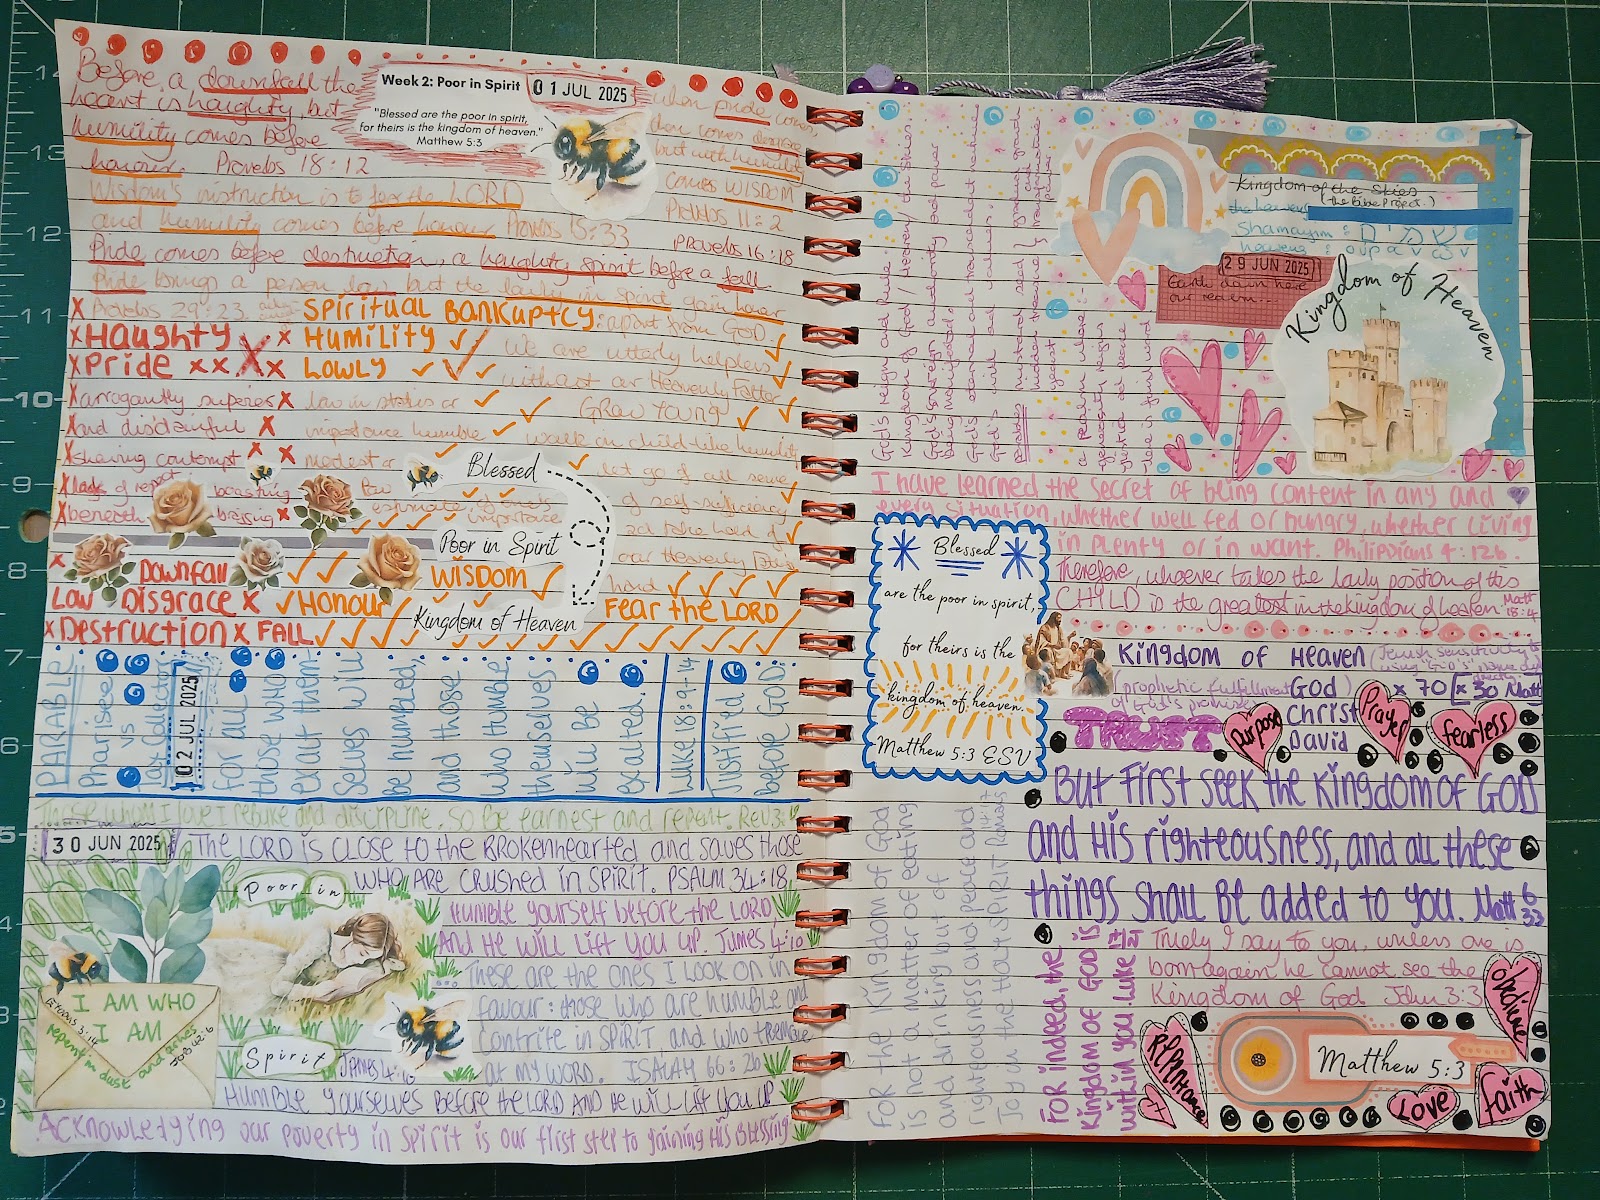 Before a downfall the
heart is haughty, but
humility comes before
honour. Proverbs 18:12
Week 2: Poor in Spirit
01 JUL 2025
"Blessed are the poor in spirit,
for theirs is the kingdom of heaven."
Matthew 5:3
when pride comes,
then comes disgrace
but with humility
comes WISDOM
Proverbs 11:2
Wisdom's instruction is to fear the LORD
and humility comes before honour Proverbs 15:33
Pride comes before destruction, a haughty spirit before a fall.
Proverbs 16:18
Pride brings a person low, but the lowly in spirit gain honour
x Proverbs 29:23
SPiRitual BANKuptcy: apart from GOD
x Haughty x x Humility ✓
We are utterly helpless
x Pride x x x x Lowly ✓ ✓ ✓
without our Heavenly Father
x arrogantly superior x
low in status or
Grow Young
x and disdainful x
importance humble
walk in child-like humility
x showing contempt x x
modest or
let go of all sense
of self-sufficiency
and take hold of
our Heavenly
hand
boasting
estimate of one's
importance
x beneath
Blessed
Poor in Spirit
Kingdom of Heaven
x Downfall ✓ ✓ WISDOM ✓
Low Disgrace x ✓ Honour
Fear the LORD
x Destruction x FALL
PARABLE
Pharisee
vs
Tax Collector
02 JUL 2025
For all
those WHO
exalt them
selves will
be humbled,
and those
who humble
themselves
will be
exalted.
Luke 18:9-14
Justified
before GOD
Those whom I love I rebuke and discipline, so be earnest and repent. Rev 3:19
30 JUN 2025
The LORD is close to the brokenhearted and saves those
who are crushed in spirit. Psalm 34:18
Poor in
Humble yourself before the LORD
And He will lift you up. James 4:10
...These are the ones I look on in
favour: those who are humble and
contrite in spirit, and who tremble
at my word. ISAIAH 66:2b
I AM WHO
I AM
Exodus 3:14
repent in dust and ashes
Job 42:6
Spirit
James 4:10
Humble yourselves before the LORD and He will lift you up
Acknowledging our poverty in spirit is our first step to gaining His Blessing
God's reign and Rule.
Kingdom of God / Heaven / the Skies
God's sovereign authority and power
being manifested.
God's will and values.
Kingdom of the Skies
(the Bible Project.)
the heavens
Shamayim :
heavens :
29 JUN 2025
Earth down here
our realm...
Kingdom of Heaven
I have learned the secret of being content in any and
every situation, whether well fed or hungry, whether living
in plenty or in want. Philippians 4:12b.
Therefore, whoever takes the lowly position of this
CHILD is the greatest in the kingdom of heaven Matt 18:4
Blessed
are the poor in spirit,
for theirs is the
kingdom of heaven.
Matthew 5:3 ESV
Kingdom of Heaven
(Jewish sensitivity to
using "God's" name directly)
(prophetic fulfillment
of God's promises)
God
x 70 [x 30 Matt
Christ
David
TRUST
Purpose
Prayer
fearless
But first seek the kingdom of GOD
and His righteousness, and all these
things shall be added to you. Matt 6 33
For the Kingdom of God
is not a matter of eating
and drinking but of
righteousness and peace and
Joy in the HOLY SPIRIT Romans 14:17
For indeed, the
kingdom of GOD is
within you. Luke 17:21
Truely I say to you, unless one is
born again he cannot see the
Kingdom of God John 3:3
obedience
Repentance
Matthew 5:3
Love
Faith